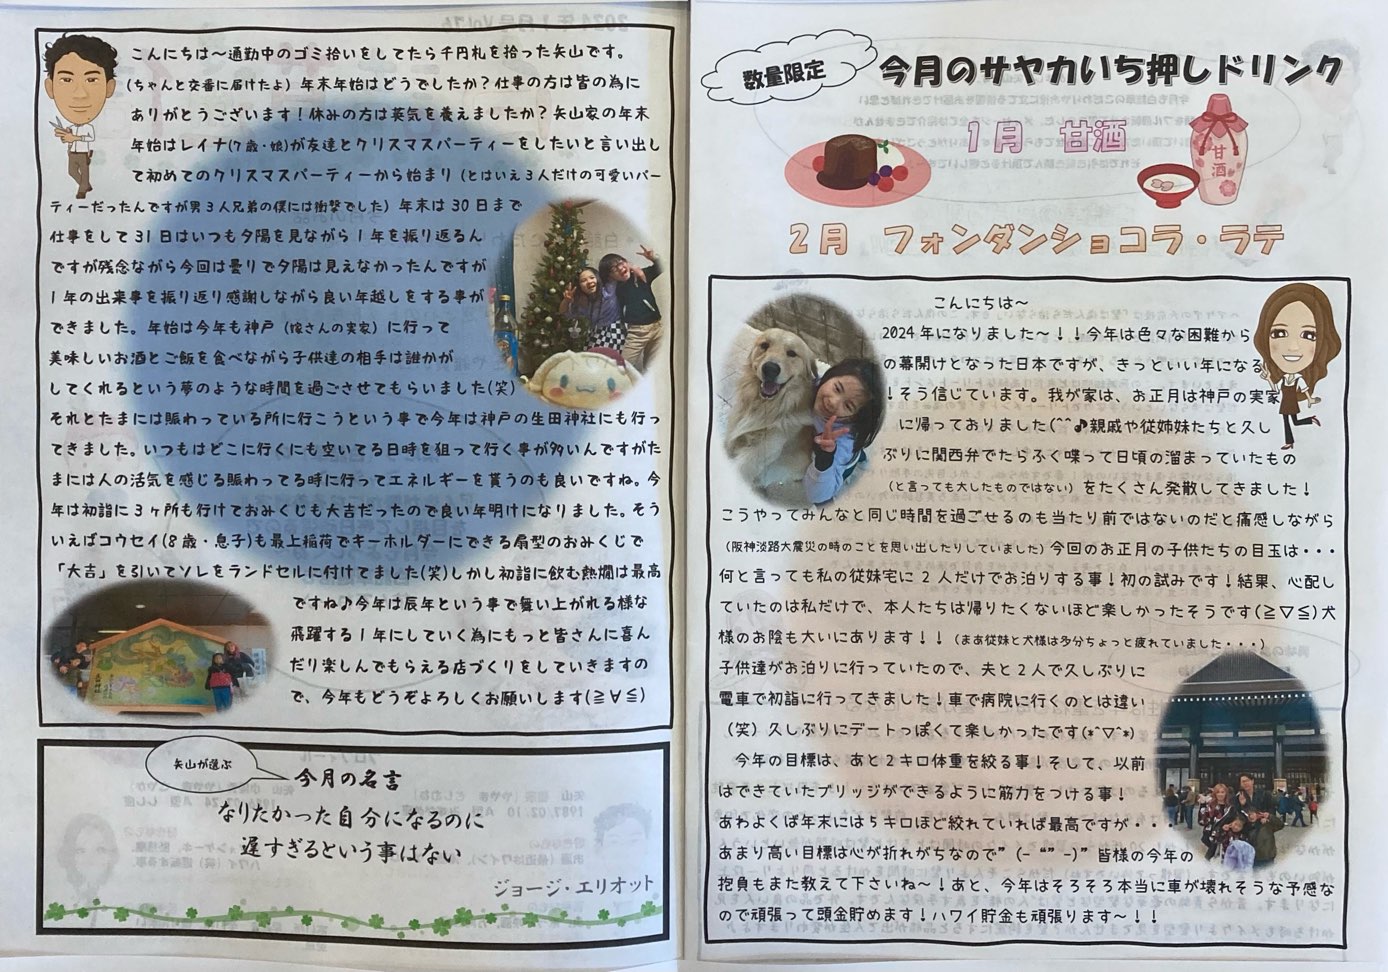 こんにちは～通勤中のゴミ拾いをしてたら千円札を拾った矢山です。
(ちゃんと交番に届けたよ) 年末年始はどうでしたか？仕事の方は皆の為に
ありがとうございます！休みの方は英気を養えましたか？矢山家の年末
年始はレイナ(7歳・娘)が友達とクリスマスパーティーをしたいと言い出し
て初めてのクリスマスパーティーから始まり (とはいえ3人だけの可愛いパー
ティーだったんですが男3人兄弟の僕には衝撃でした) 年末は30日まで
仕事をして31日はいつも夕陽を見ながら1年を振り返るん
ですが残念ながら今回は曇りで夕陽は見えなかったんですが
1年の出来事を振り返り感謝しながら良い年越しをする事が
できました。年始は今年も神戸 (嫁さんの実家) に行って
美味しいお酒とご飯を食べながら子供達の相手は誰かが
してくれるという夢のような時間を過ごさせてもらいました(笑)
それとたまには賑わっている所に行こうという事で今年は神戸の生田神社にも行っ
てきました。いつもはどこに行くにも空いてる日時を狙って行く事が多いんですがた
まには人の活気を感じる賑わってる時に行ってエネルギーを貰うのも良いですね。今
年は初詣に3ヶ所も行けておみくじも大吉だったので良い年明けになりました。そう
いえばコウセイ(8歳・息子)も最上稲荷でキーホルダーにできる扇型のおみくじで
「大吉」を引いてソレをランドセルに付けてました(笑)しかし初詣に飲む熱燗は最高
ですね♪今年は辰年という事で舞い上がれる様な
飛躍する1年にしていく為にもっと皆さんに喜ん
だり楽しんでもらえる店づくりをしていきますの
で、今年もどうぞよろしくお願いします(≧∀≦)
矢山が選ぶ
今月の名言
なりたかった自分になるのに
遅すぎるという事はない
ジョージ・エリオット
数量限定
今月のサヤカいち押しドリンク
1月　甘酒
甘酒
2月　フォンダンショコラ・ラテ
こんにちは～
2024年になりました～！！今年は色々な困難から
の幕開けとなった日本ですが、きっといい年になる
！そう信じています。我が家は、お正月は神戸の実家
に帰っておりました(^^♪親戚や従姉妹たちと久し
ぶりに関西弁でたらふく喋って日頃の溜まっていたもの
(と言っても大したものではない) をたくさん発散してきました！
こうやってみんなと同じ時間を過ごせるのも当たり前ではないのだと痛感しながら
(阪神淡路大震災の時のことを思い出したりしていました) 今回のお正月の子供たちの目玉は・・・
何と言っても私の従妹宅に2人だけでお泊りする事！初の試みです！結果、心配し
ていたのは私だけで、本人たちは帰りたくないほど楽しかったそうです(≧▽≦)犬
様のお陰も大いにあります！！ (まあ従妹と犬様は多分ちょっと疲れていました・・・・)
子供達がお泊りに行っていたので、夫と2人で久しぶりに
電車で初詣に行ってきました！車で病院に行くのとは違い
(笑) 久しぶりにデートっぽくて楽しかったです(*^▽^*)
今年の目標は、あと2キロ体重を絞る事！そして、以前
はできていたブリッジができるように筋力をつける事！
あわよくば年末には5キロほど絞れていれば最高ですが・・・
あまり高い目標は心が折れがちなので"(-“”-)"皆様の今年の
抱負もまた教えて下さいね～！あと、今年はそろそろ本当に車が壊れそうな予感な
ので頑張って頭金貯めます！ハワイ貯金も頑張ります～！！